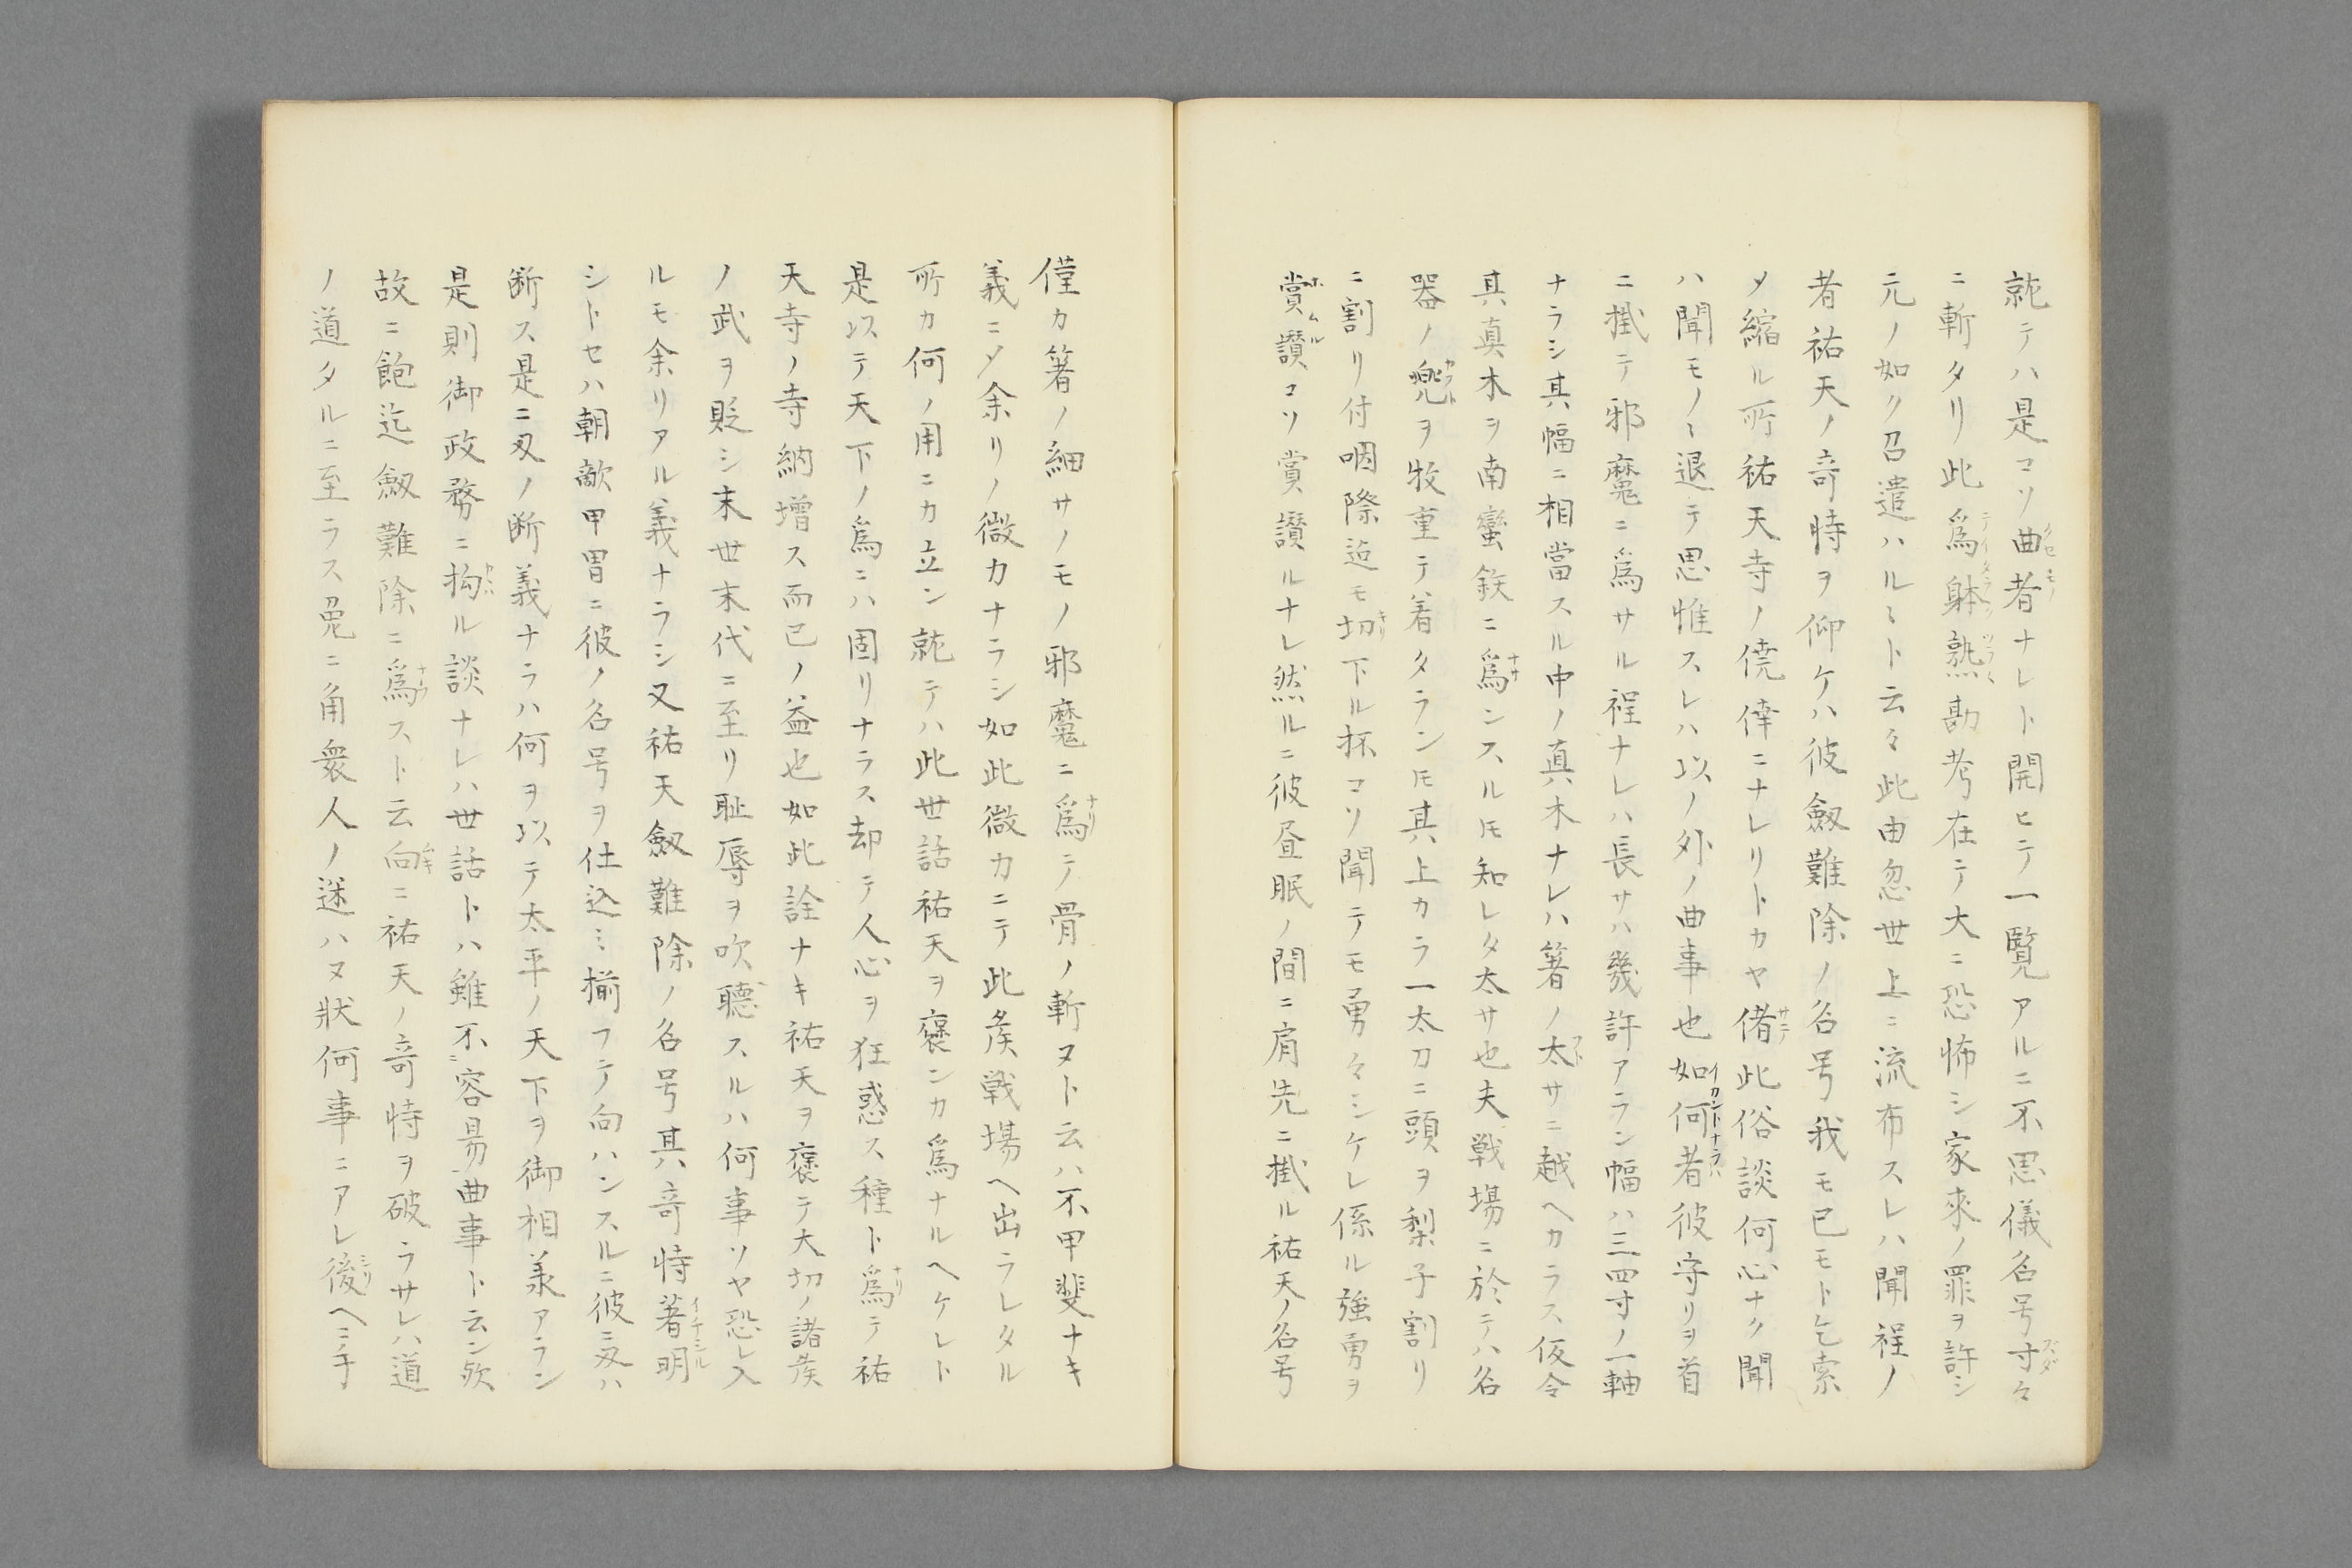 就テハ是コソ曲者ナレト開ヒテ一覧アルニ不思儀名号寸々
ニ斬タリ此爲躰熟勘考在テ大ニ恐怖シ家來ノ罪ヲ許シ
元ノ如ク召遣ハルヽト云々此由忽世上ニ流布スレハ聞程ノ
者祐天ノ竒特ヲ仰ケハ彼劔難除ノ名号我モ已モト乞索
メ縮ル所祐天寺ノ僥倖ニナレリトカヤ偖此俗談何心ナク聞
ハ聞モノヽ退テ思惟スレハ以ノ外ノ曲事也如何者彼守リヲ首
ニ掛テ邪魔ニ爲サル程ナレハ長サハ幾許アラン幅ハ三四寸ノ一軸
ナラシ其幅ニ相當スル中ノ真木ナレハ箸ノ太サニ越ヘカラス仮令
其真木ヲ南蛮鉄ニ爲ンスルモ知レタ太サ也夫戦場ニ於テハ名
器ノ兜ヲ牧重テ着タランモ其上カラ一太刀ニ頭ヲ梨子割リ
ニ割リ付咽際迠モ切下ル抔コソ聞テモ勇々シケレ係ル強勇ヲ
賞讃コソ賞讃ルナレ然ルニ彼昼眠ノ間ニ肩先ニ掛ル祐天ノ名号
僅カ箸ノ細サノモノ邪魔ニ爲テ骨ノ斬ヌト云ハ不甲斐ナキ
義ニメ余リノ微カナラシ如此微カニテ此矦戦場ヘ出ラレタル
所カ何ノ用ニカ立ン就テハ此世話祐天ヲ褒ンカ爲ナルヘケレト
是以テ天下ノ爲ニハ固リナラス却テ人心ヲ狂惑ス種ト爲テ祐
天寺ノ寺納増ス而已ノ益也如此詮ナキ祐天ヲ褒テ大切ノ諸矦
ノ武ヲ貶シ末世末代ニ至リ耻辱ヲ吹聴スルハ何事ソヤ恐レ入
ルモ余リアル義ナラシ又祐天劔難除ノ名号其竒特著明
シトセハ朝敵甲冑ニ彼ノ名号ヲ仕込ミ揃フテ向ハンスルニ彼ニ刄ハ
断ス是ニ刄ノ断義ナラハ何ヲ以テ太平ノ天下ヲ御相羕アラン
是則御政務ニ拘ル談ナレハ世話トハ雖不容易曲事ト云ン歟
故ニ飽迄劔難除ニ爲スト云向ニ祐天ノ竒特ヲ破ラサレハ道
ノ道タルニ至ラス兎ニ角衆人ノ迷ハヌ状何事ニアレ後ヘニ手